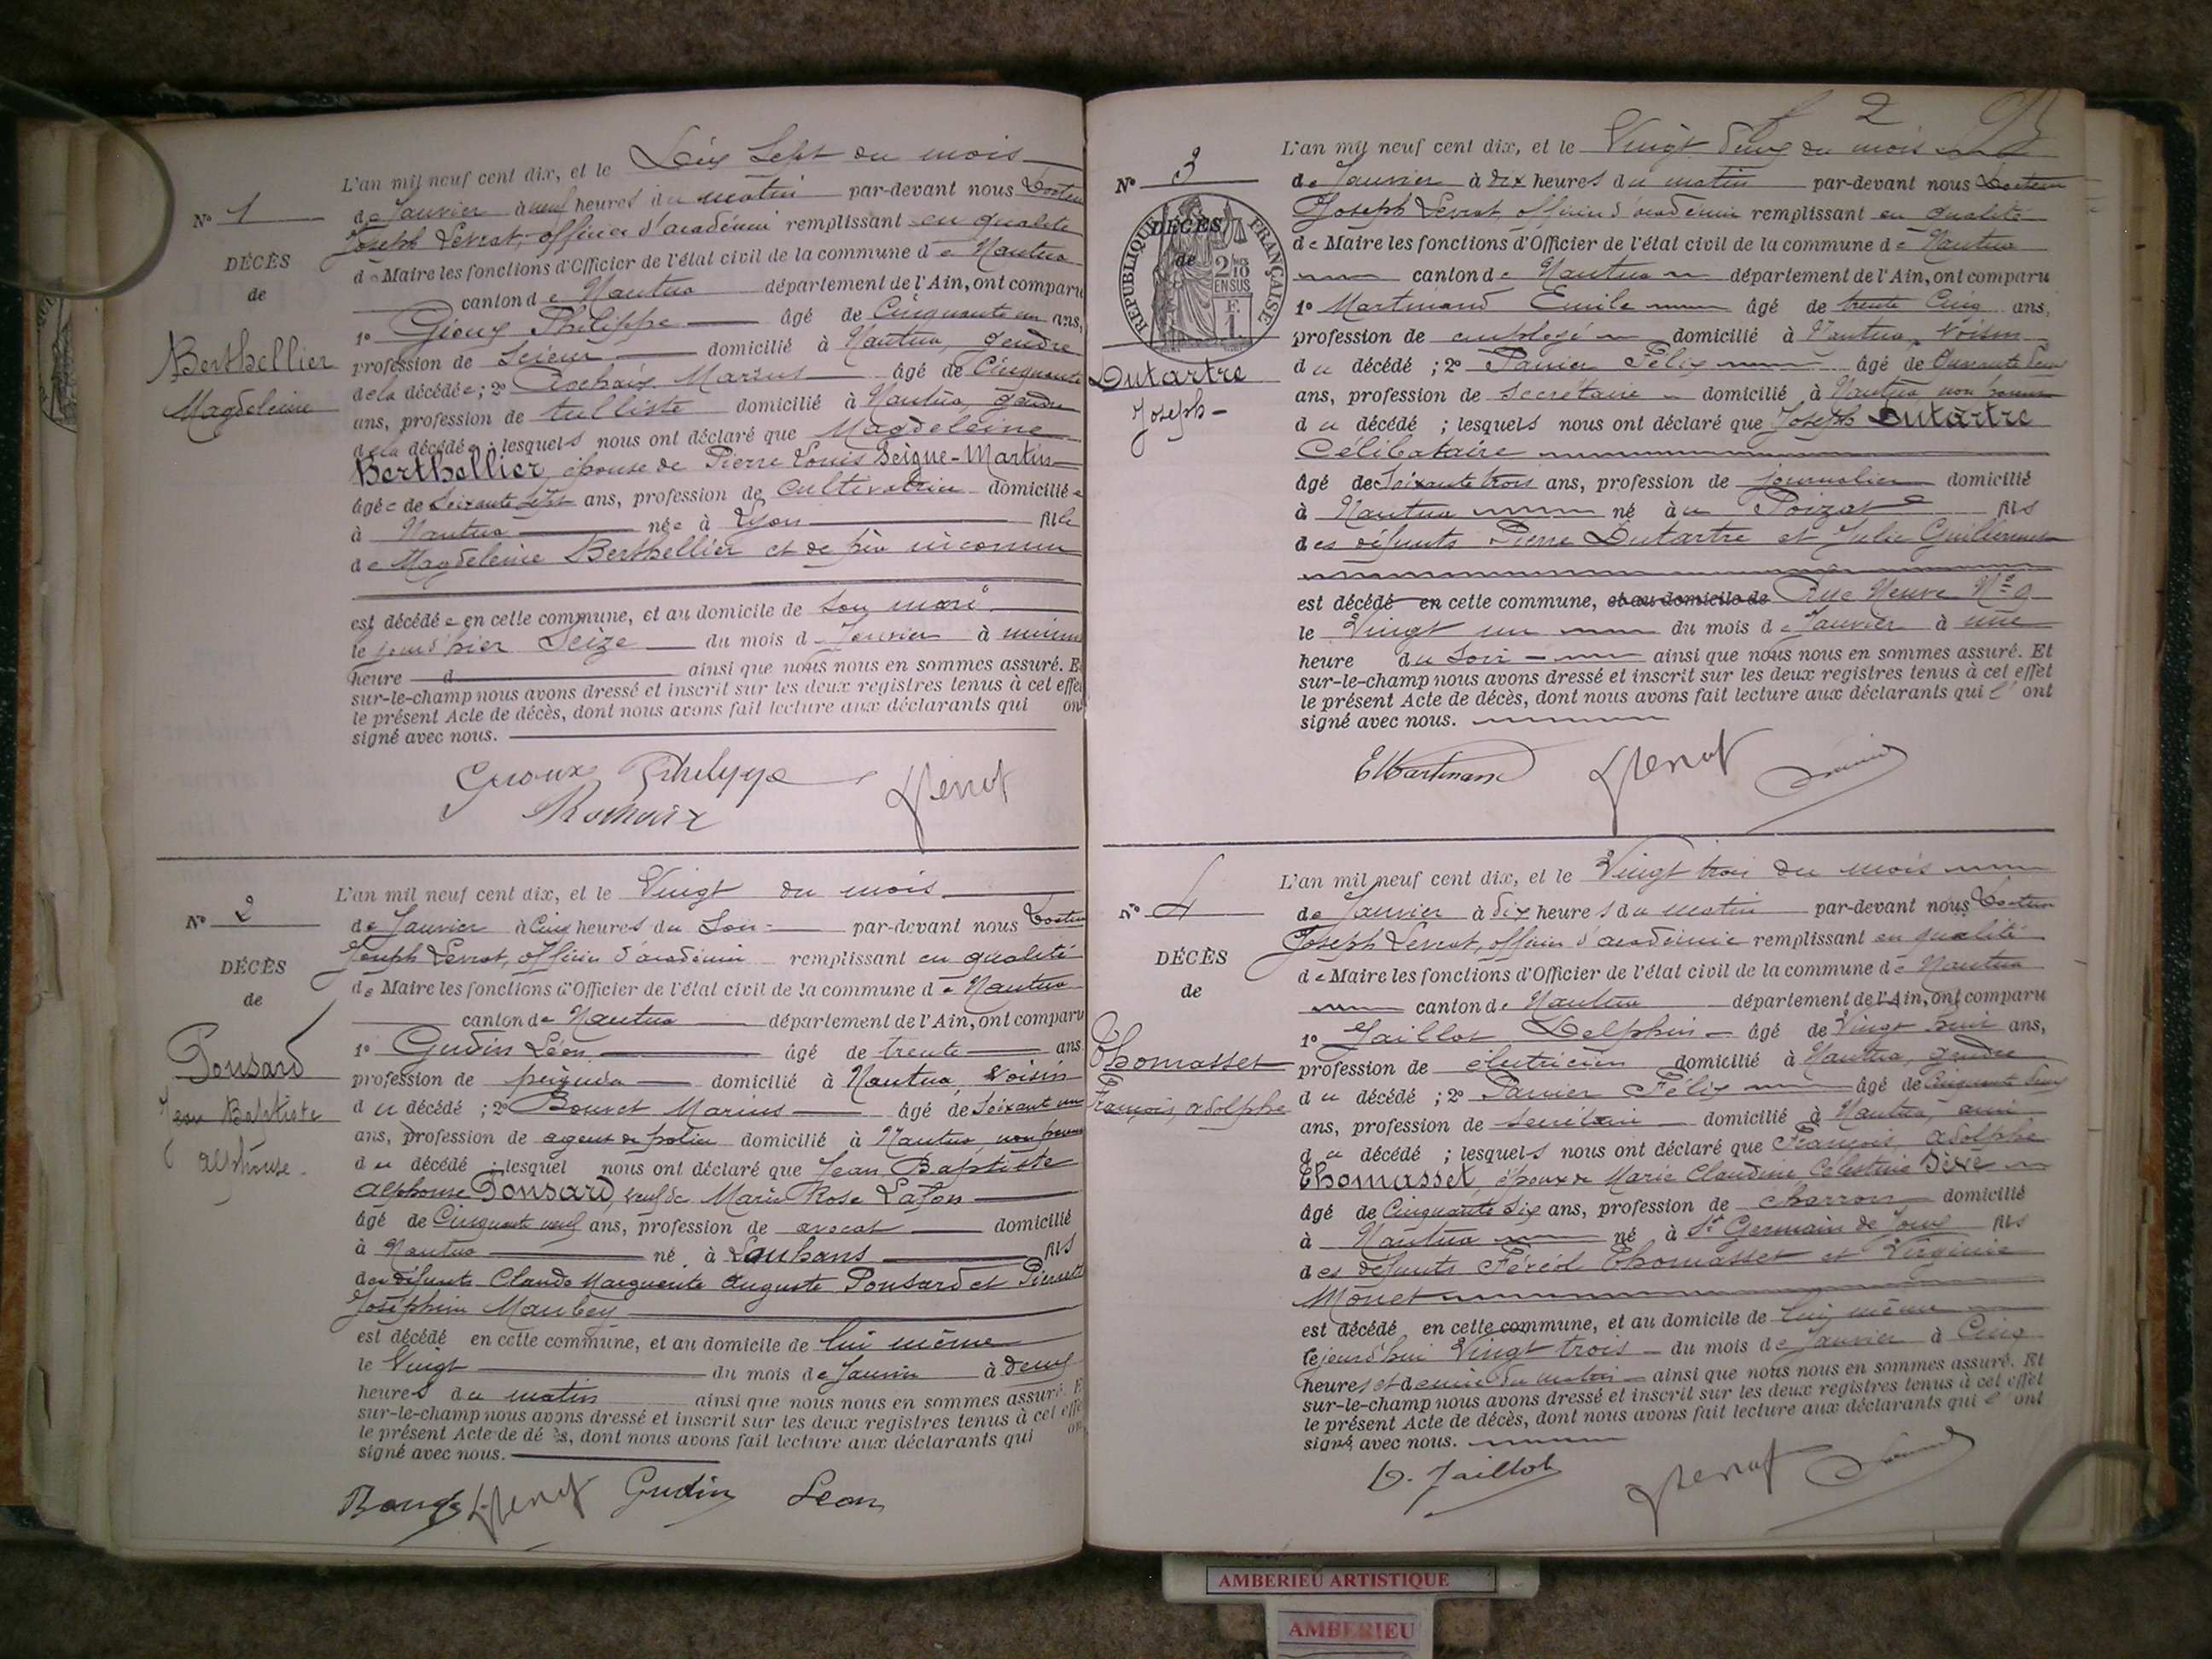 L'an mil neuf cent dix, et le Dix Sept du mois
Nº 1
de Janvier à neuf heures du matin par-devant nous Docteur
Joseph Levrat, officier d'académie remplissant en qualité
DÉCÈS
de Maire les fonctions d'Officier de l'état civil de la commune de Nantua
de
canton de Nantua département de l'Ain, ont comparu
1º Gioux Philippe âgé de Cinquante un ans,
Berthellier
profession de Scieur domicilié à Nantua, gendre
Magdeleine
de la décédée; 2º Rochaix Marius âgé de Cinquante
ans, profession de tulliste domicilié à Nantua, gendre
de la décédée; lesquels nous ont déclaré que Magdeleine
Berthellier, épouse de Pierre Louis Seigne-Martin
âgée de Soixante Sept ans, profession de Cultivatrice domiciliée
à Nantua née à Lyon fille
de Magdeleine Berthellier et de père inconnu
est décédée en cette commune, et au domicile de Son mari
le jour d'hier Seize du mois d Janvier à minuit
heure d ainsi que nous nous en sommes assuré. E
sur-le-champ nous avons dressé et inscrit sur les deux registres tenus à cet effet
le présent Acte de décès, dont nous avons fait lecture aux déclarants qui ont
signé avec nous.
Gioux Philippe
Rochaix
JLevrat
L'an mil neuf cent dix, et le Vingt du mois
Nº 2
de Janvier à Cinq heures du Soir par-devant nous Docteur
Joseph Levrat, officier d'académie remplissant en qualité
DÉCÈS
de Maire les fonctions d'Officier de l'état civil de la commune de Nantua
de
canton de Nantua département de l'Ain, ont comparu
1º Gudin Léon âgé de trente ans
Ponsard
profession de domicilié à Nantua, Voisin
Jean Baptiste
du décédé; 2º Bouvet Marius âgé de Soixante un
ans, profession de agent de police domicilié à Nantua, non parent
Alphonse
du décédé; lesquel nous ont déclaré que Jean Baptiste
Alphonse Ponsard, veuf de Marie Rose Lafon
âgé de Cinquante neuf ans, profession de avocat domicilié
à Nantua né à Louhans fils
des défunts Claude Marguerite Auguste Ponsard et Pierrette
Joséphine Maubey
est décédé en cette commune, et au domicile de lui même
le Vingt du mois de Janvier à deux
heures du matin ainsi que nous nous en sommes assuré. E
sur-le-champ nous avons dressé et inscrit sur les deux registres tenus à cet effe
le présent Acte de décès, dont nous avons fait lecture aux déclarants qui on
signé avec nous.
JLevrat Gudin Leon
2
L'an mil neuf cent dix, et le Vingt deux du mois
Nº 3
de Janvier à dix heures du matin par-devant nous Docteur
Joseph Levrat, officier d'académie remplissant en qualité
RÉPUBLIQUE FRANÇAISE
DÉCÈS
de
2/10 EN SUS
F. 1.
de Maire les fonctions d'Officier de l'état civil de la commune de Nantua
canton de Nantua département de l'Ain, ont comparu
1º Martinand Emile âgé de trente Cinq ans,
profession de employé domicilié à Nantua, Voisin
Dutartre
du décédé; 2º Panier Félix âgé de Cinquante deux
Joseph
ans, profession de Secrétaire domicilié à Nantua non parent
du décédé; lesquels nous ont déclaré que Joseph Dutartre
Célibataire
âgé de Soixante trois ans, profession de journalier domicilié
à Nantua né au Poizat fils
des défunts Pierre Dutartre et Julie Guillermet
est décédé en cette commune, et au domicile de Rue Neuve Nº 9
le Vingt un du mois de Janvier à une
heure du Soir ainsi que nous nous en sommes assuré. Et
sur-le-champ nous avons dressé et inscrit sur les deux registres tenus à cet effet
le présent Acte de décès, dont nous avons fait lecture aux déclarants qui l'ont
signé avec nous.
EMartinand JLevrat
L'an mil neuf cent dix, et le Vingt trois du mois
Nº 4
de Janvier à dix heures du matin par-devant nous Docteur
Joseph Levrat, officier d'académie remplissant en qualité
DÉCÈS
de Maire les fonctions d'Officier de l'état civil de la commune de Nantua
de
canton de Nantua département de l'Ain, ont comparu
1º Jaillot Delphin âgé de Vingt huit ans,
Thomasset
profession de électricien domicilié à Nantua, gendre
François, Adolphe
du décédé; 2º Panier Félix âgé de Cinquante deux
ans, profession de Secrétaire domicilié à Nantua, ami
du décédé; lesquels nous ont déclaré que François, Adolphe
Thomasset, époux de Marie Claudine Célestine
âgé de Cinquante Six ans, profession de charron domicilié
à Nantua né à St Germain de Joux fils
des défunts Féréol Thomasset et Virginie
Monet
est décédé en cette commune, et au domicile de lui même
le jourd'hui Vingt trois du mois de Janvier à Cinq
heures et demie du matin ainsi que nous nous en sommes assuré. Et
sur-le-champ nous avons dressé et inscrit sur les deux registres tenus à cet effet
le présent Acte de décès, dont nous avons fait lecture aux déclarants qui l'ont
signé avec nous.
D. Jaillot JLevrat
AMBERIEU ARTISTIQUE
AMBERIEU